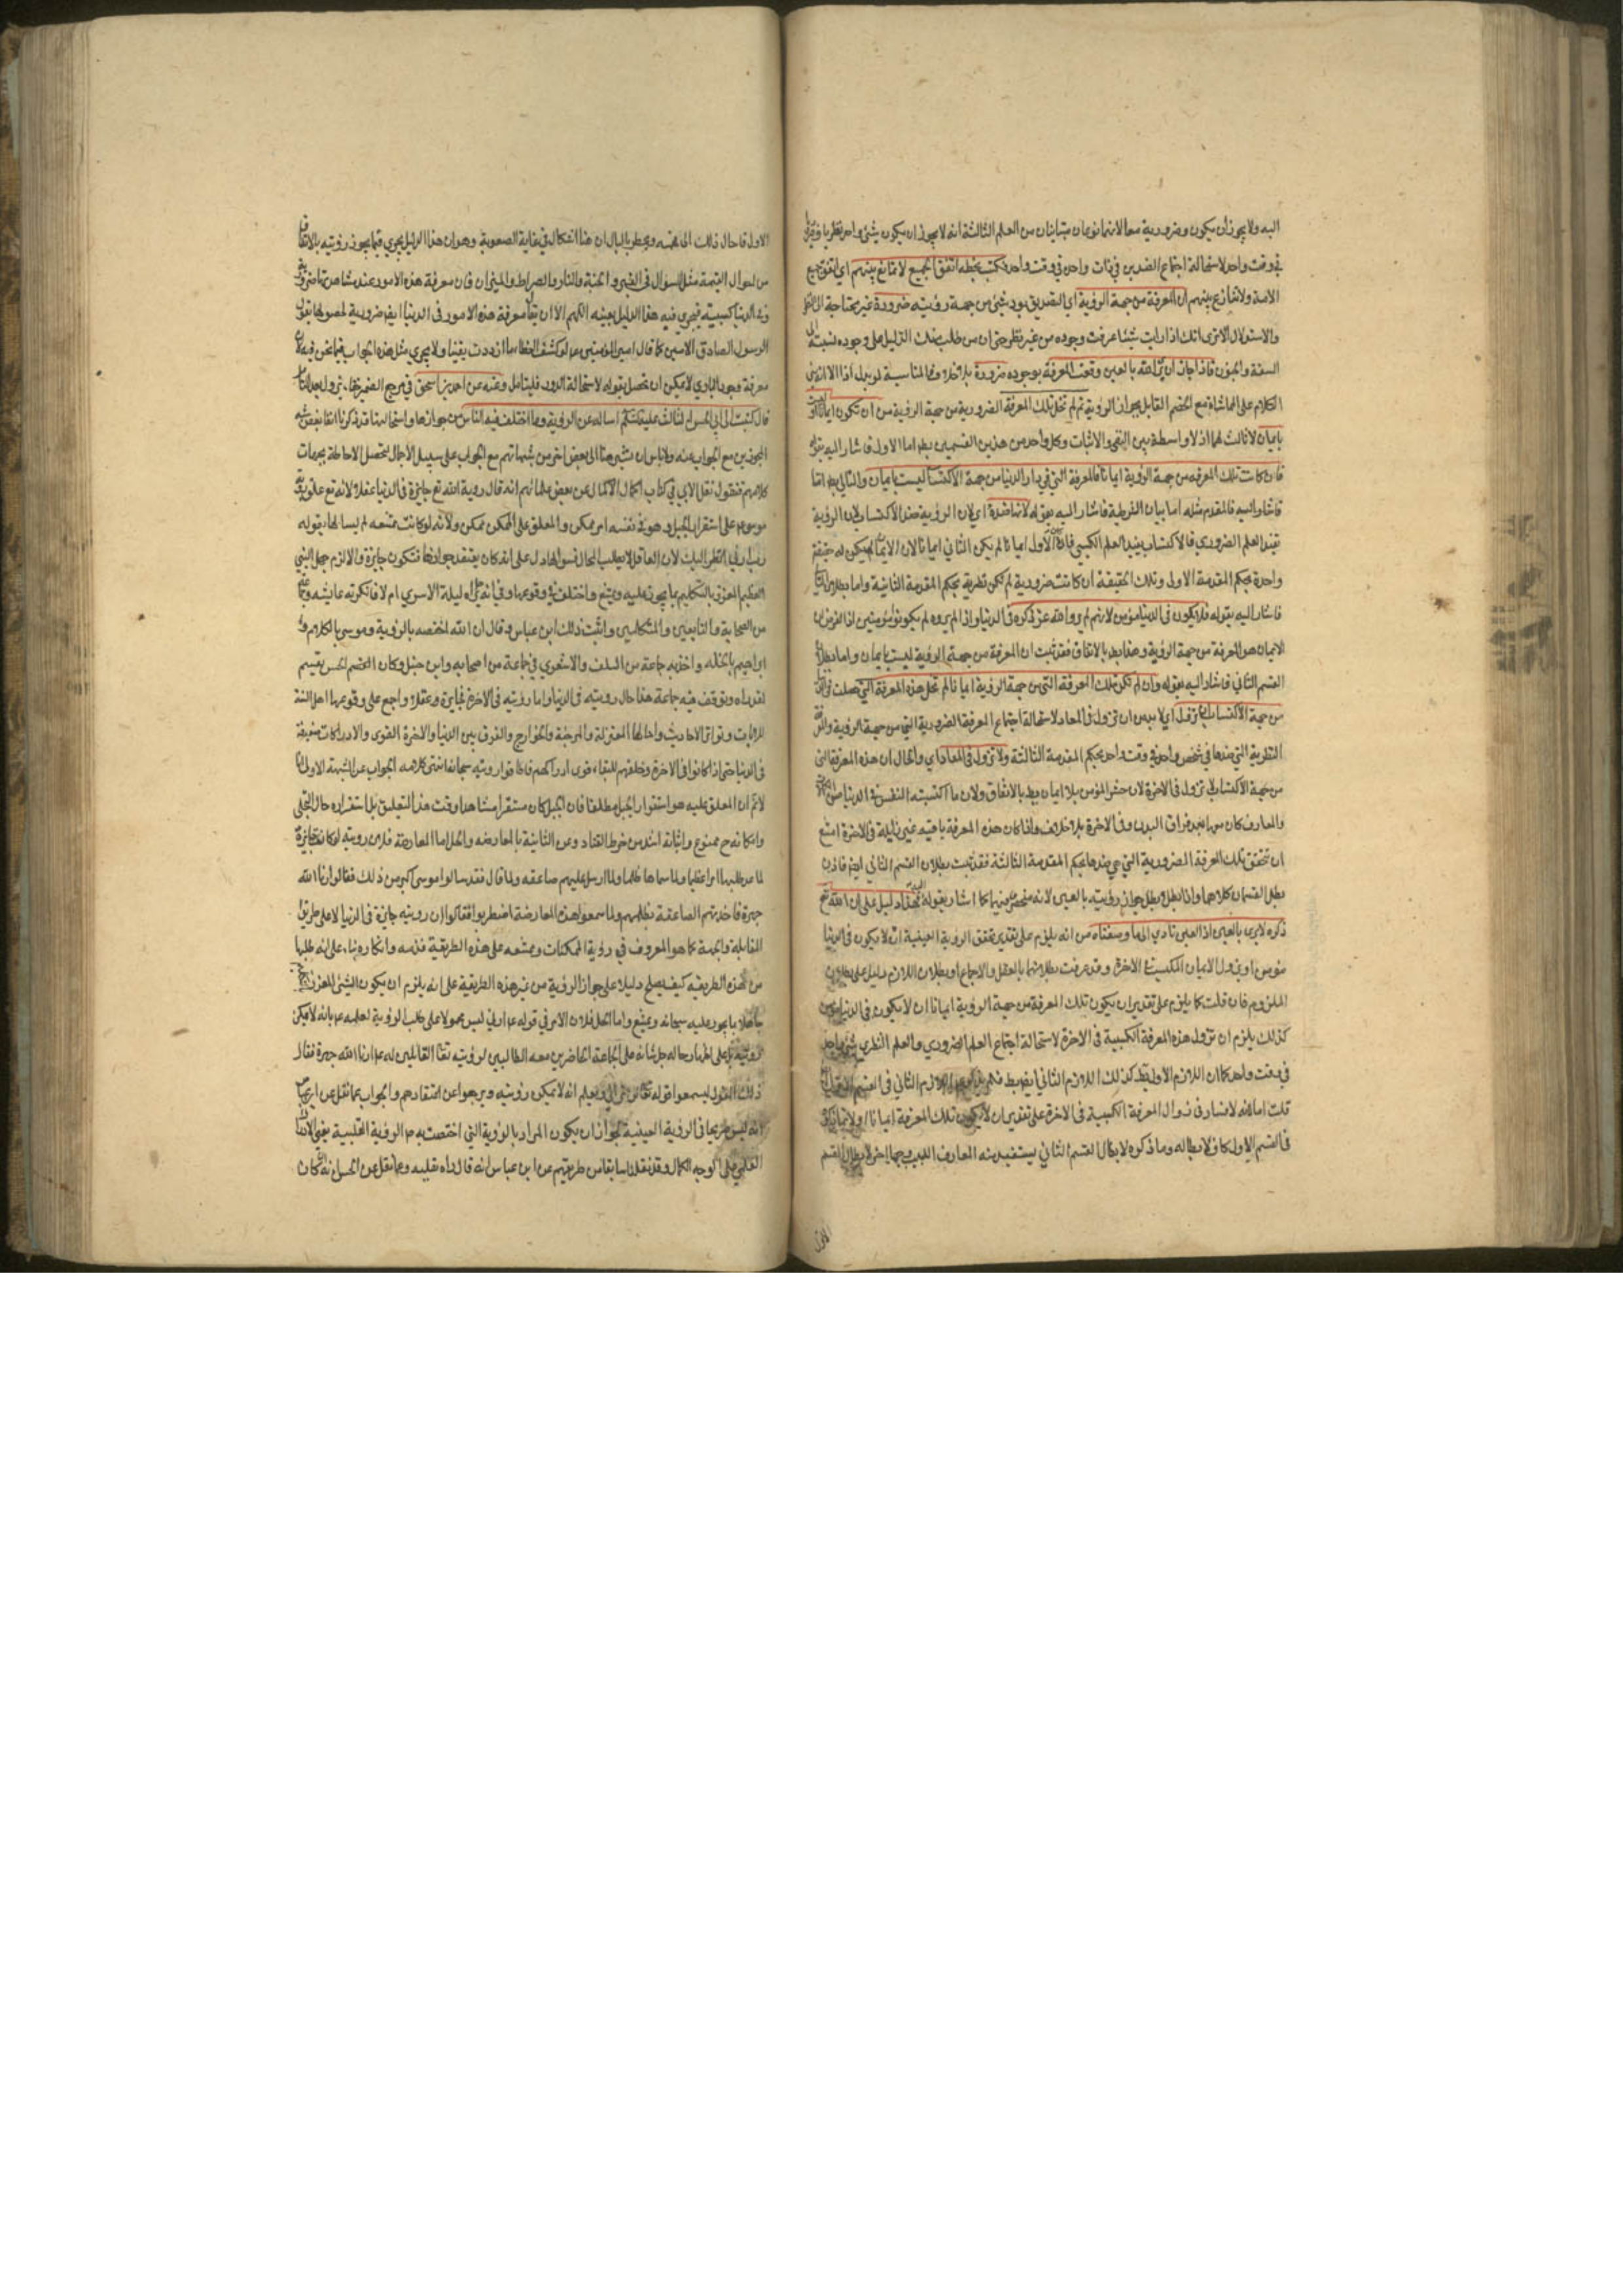 اليه ولا يجوز أن يكون وضرورية معا لانهما نوعان متباينان من العلم الثالثة انه لا يجوز ان يكون شئ واحد نظريا وضروريا
في وقت واحد لاستحالة اجتماع الضدين في ذات واحدة في وقت واحد فكتب بخطه اتفق الجميع لا تمانع بينهم اي اتفق جميع
الامة ولا تنازع بينهم ان المعرفة من جهة الرؤية اي التصديق بوجود شئ من جهة رؤيته ضرورة غير محتاجة الى النظر
والاستدلال الا ترى انك اذا رايت شيئا عرفت وجوده من غير نظر حتى ان من طلب منك الدليل على وجوده نسبته الى
السفه والجنون فاذا جاز ان يرى الله بالعين وقعت المعرفة بوجوده ضرورة بلا
الكلام على المماشاة مع الخصم القايل بجواز الرؤية ثم لم تخل تلك المعرفة الضرورية من جهة الرؤية من ان تكون ايمانا او ليست
بايمان لا ثالث لهما اذ لا واسطة بين النفي والاثبات وكل واحد من هذين القسمين بط اما الاول فاشار اليه بقوله
فان كانت تلك المعرفة من جهة الرؤية ايمانا فالمعرفة التي في دار الدنيا من جهة الاكتساب ليست بايمان والتالي بط اتفاقا
فالمقدم مثله اما بيان الشرطية فاشار اليه بقوله لانها ضده اي لان الرؤية ضد الاكتساب لان الرؤية
تفيد العلم الضروري والاكتساب يفيد العلم الكسبي فاذا كان الاول ايمانا لم يكن الثاني ايمانا لان الايمان
واحدة بحكم المقدمة الاولى وتلك الحقيقة ان كانت ضرورية لم تكن نظرية بحكم المقدمة الثانية واما بطلان التالي
فاشار اليه بقوله فلا يكون في الدنيا مؤمن لانهم لم يروا الله عز ذكره في الدنيا واذا لم يروه لم يكونوا مؤمنين اذ الفرض ان
الايمان هو المعرفة من جهة الرؤية وهذا بط بالاتفاق فقد ثبت ان المعرفة من جهة الرؤية ليست بايمان واما بطلان
القسم الثاني فاشار اليه بقوله وان لم تكن تلك المعرفة التي من جهة الرؤية ايمانا لم تخل هذه المعرفة التي حصلت في الدنيا
من جهة الاكتساب ان تزول اي لا بد من ان تزول في المعاد لاستحالة اجتماع المعرفة الضرورية التي من جهة الرؤية والمعرفة
النظرية التي ضدها في شخص واحد في وقت واحد بحكم المقدمة الثالثة ولا تزول في المعاد اي والحال ان هذه المعرفة التي
من جهة الاكتساب لا تزول في الاخرة لان حشر المؤمن بلا ايمان بط بالاتفاق ولان ما اكتسبته النفس في الدنيا من
والمعارف كان معها بعد فراق البدن وفي الاخرة بلا خلاف واذا كان هذه المعرفة باقية غير زايلة في الاخرة امتنع
ان تتحقق تلك المعرفة الضرورية التي هي ضدها بحكم المقدمة الثالثة فقد ثبت بطلان القسم الثاني ايض فاذن
بطل القسمان كلاهما واذا بطل بطل جواز رؤيته بالعين لانه منحصر فيهما كما اشار بقوله فهذا دليل على ان الله تع
ذكره لا يرى بالعين اذ العين تؤدي الى ما وصفناه من انه يلزم على تقدير تحقق الرؤية العينية ان لا يكون في الدنيا
مؤمن او يزول الايمان المكتسب في الاخرة وقد عرفت بطلانهما بالعقل والاجماع وبطلان اللازم دليل على بطلان
الملزوم فان قلت كما يلزم على تقدير ان يكون تلك المعرفة من جهة الرؤية ايمانا ان لا يكون في الدنيا مؤمن
كذلك يلزم ان تزول هذه المعرفة الكسبية في الاخرة لاستحالة اجتماع العلم الضروري والعلم النظري بشئ واحد
في وقت واحد فكما ان اللازم الاول بط كذلك اللازم الثاني ايض بط فلم لم اللازم الثاني في القسم
قلت اما لانه لا فساد في زوال المعرفة الكسبية في الاخرة على تقدير ان لا يكون تلك المعرفة ايمانا
في القسم الاول كاف لابطاله وما ذكره لابطال القسم الثاني يستفيد منه العارف اللبيب وجها اخر لابطال القسم
الاول
الاول فاحال ذلك الى فهمه ويخطر بالبال ان هنا اشكالا في غاية الصعوبة وهو ان هذا الدليل يجري فيما يجوز رؤيته بالاتفاق
من احوال القيمة مثل السؤال في القبر والجنة والنار والصراط والميزان فان معرفة هذه الامور عند مشاهدتها ضرورية
وفي الدنيا كسبية فيجري فيه هذا الدليل بعينه اللهم الا ان يقال معرفة هذه الامور في الدنيا ايض ضرورية لحصولها بقول
الرسول الصادق الامين كما قال امير المؤمنين ع لو كشف الغطاء ما ازددت يقينا ولا يجري مثل هذا الجواب فيما نحن فيه لان
معرفة وجود الباري لا يمكن ان تحصل بقوله لاستحالة الدور فليتامل وعنه عن احمد بن اسحق
قال كتبت الى ابي الحسن الثالث عليه السلام اساله عن الرؤية وما اختلف فيه الناس من جوازها واستحالتها قد ذكرنا انفا بعض
المجوزين مع الجواب عنه ولا باس ان نشير هنا الى بعض اخر من شبهاتهم مع الجواب على سبيل الاجمال لتحصل الاحاطة بجهات
كلامهم فنقول نقل الابي في كتاب اكمال الاكمال عن بعض علمائهم انه قال رؤية الله تع جايزة في الدنيا عقلا لانه تع علق رؤية
موسى ع على استقرار الجبل وهو في نفسه امر ممكن والمعلق على الممكن ممكن ولانه لو كانت ممتنعه لم يسالها بقوله
رب ارني انظر اليك لان العاقل لا يطلب المحال فسؤالها دل على انه كان يعتقد جوازها فتكون جايزة والا لزم جهل النبي
العظيم المعزز بالتكليم بما يجوز عليه ويمتنع واختلف في وقوعها وفي انه هل راه ليلة الاسرى ام لا فانكرته عايشه وجماعة
من الصحابة والتابعين والمتكلمين واثبت ذلك ابن عباس وقال ان الله اختصه بالرؤية وموسى بالكلام و
ابراهيم بالخلة واخذ به جماعة من السلف والاشعري في جماعة من اصحابه وابن حنبل وكان الحسن يقسم
لقد راه وتوقف فيه جماعة هذا حال رؤيته في الدنيا واما رؤيته في الاخرة فجايزة عقلا واجمع على وقوعها اهل السنة
للايات وتواتر الاحاديث واحالها المعتزلة والمرجئة والخوارج والفرق بين الدنيا والاخرة ان القوى والادراكات ضعيفة
في الدنيا حتى اذا كانوا في الاخرة وخلقهم للبقاء قوى ادراكهم فاطاقوا رؤيته سبحانه انتهى كلامه الجواب عن الشبهة الاولى انا
لا نم ان المعلق عليه هو استقرار الجبل مطلقا فان الجبل كان مستقرا مشاهدا وقت هذا التعليق بل استقراره حال التجلي
وامكانه ح ممنوع واثباته اشد من خرط القتاد وعن الثانية بالمعارضه والحل اما المعارضة فلان رؤيته لو كانت جايزة
لما عد طلبها امرا عظيما ولما سماها ظلما ولما ارسل عليهم صاعقه ولما قال فقد سالوا موسى اكبر من ذلك فقالوا ارنا الله
جهرة فاخذتهم الصاعقة بظلمهم ولما سمعوا هذه المعارضة اضطربوا فقالوا ان رؤيته جايزة في الدنيا لا على طريق
المقابلة والجهة كما هو المعروف في رؤية الممكنات وممتنعه على هذه الطريقة فذمه وانكاره بناء على انه طلبها
من هذه الطريقه كيف يصلح دليلا على جواز الرؤية من غير هذه الطريقة على انه يلزم ان يكون النبي المعزز
جاهلا بما يجوز عليه سبحانه ويمتنع واما الحل فلان الامر في قوله ع ارني ليس محمولا على طلب الرؤية لعلمه ع بانه لا يمكن
رؤيته بل على اظهار حاله جل شانه على الجماعة الحاضرين معه الطالبين لرؤيته تعالى القايلين له ع ارنا الله جهرة فقال
ذلك القول ليسمعوا قوله تعالى لن تراني ويعلم انه لا يمكن رؤيته ويرجعوا عن اعتقادهم والجواب عما نقل عن ابن عباس
انه ليس صريحا في الرؤية العينية لجواز ان يكون المراد بالرؤية التي اختصت به ص الرؤية القلبية يعني الانكشاف
القلبي على الوجه الاكمل وقد نقلنا سابقا من طريقهم عن ابن عباس انه قال راه بقلبه وعما نقل عن الحسن انه كان